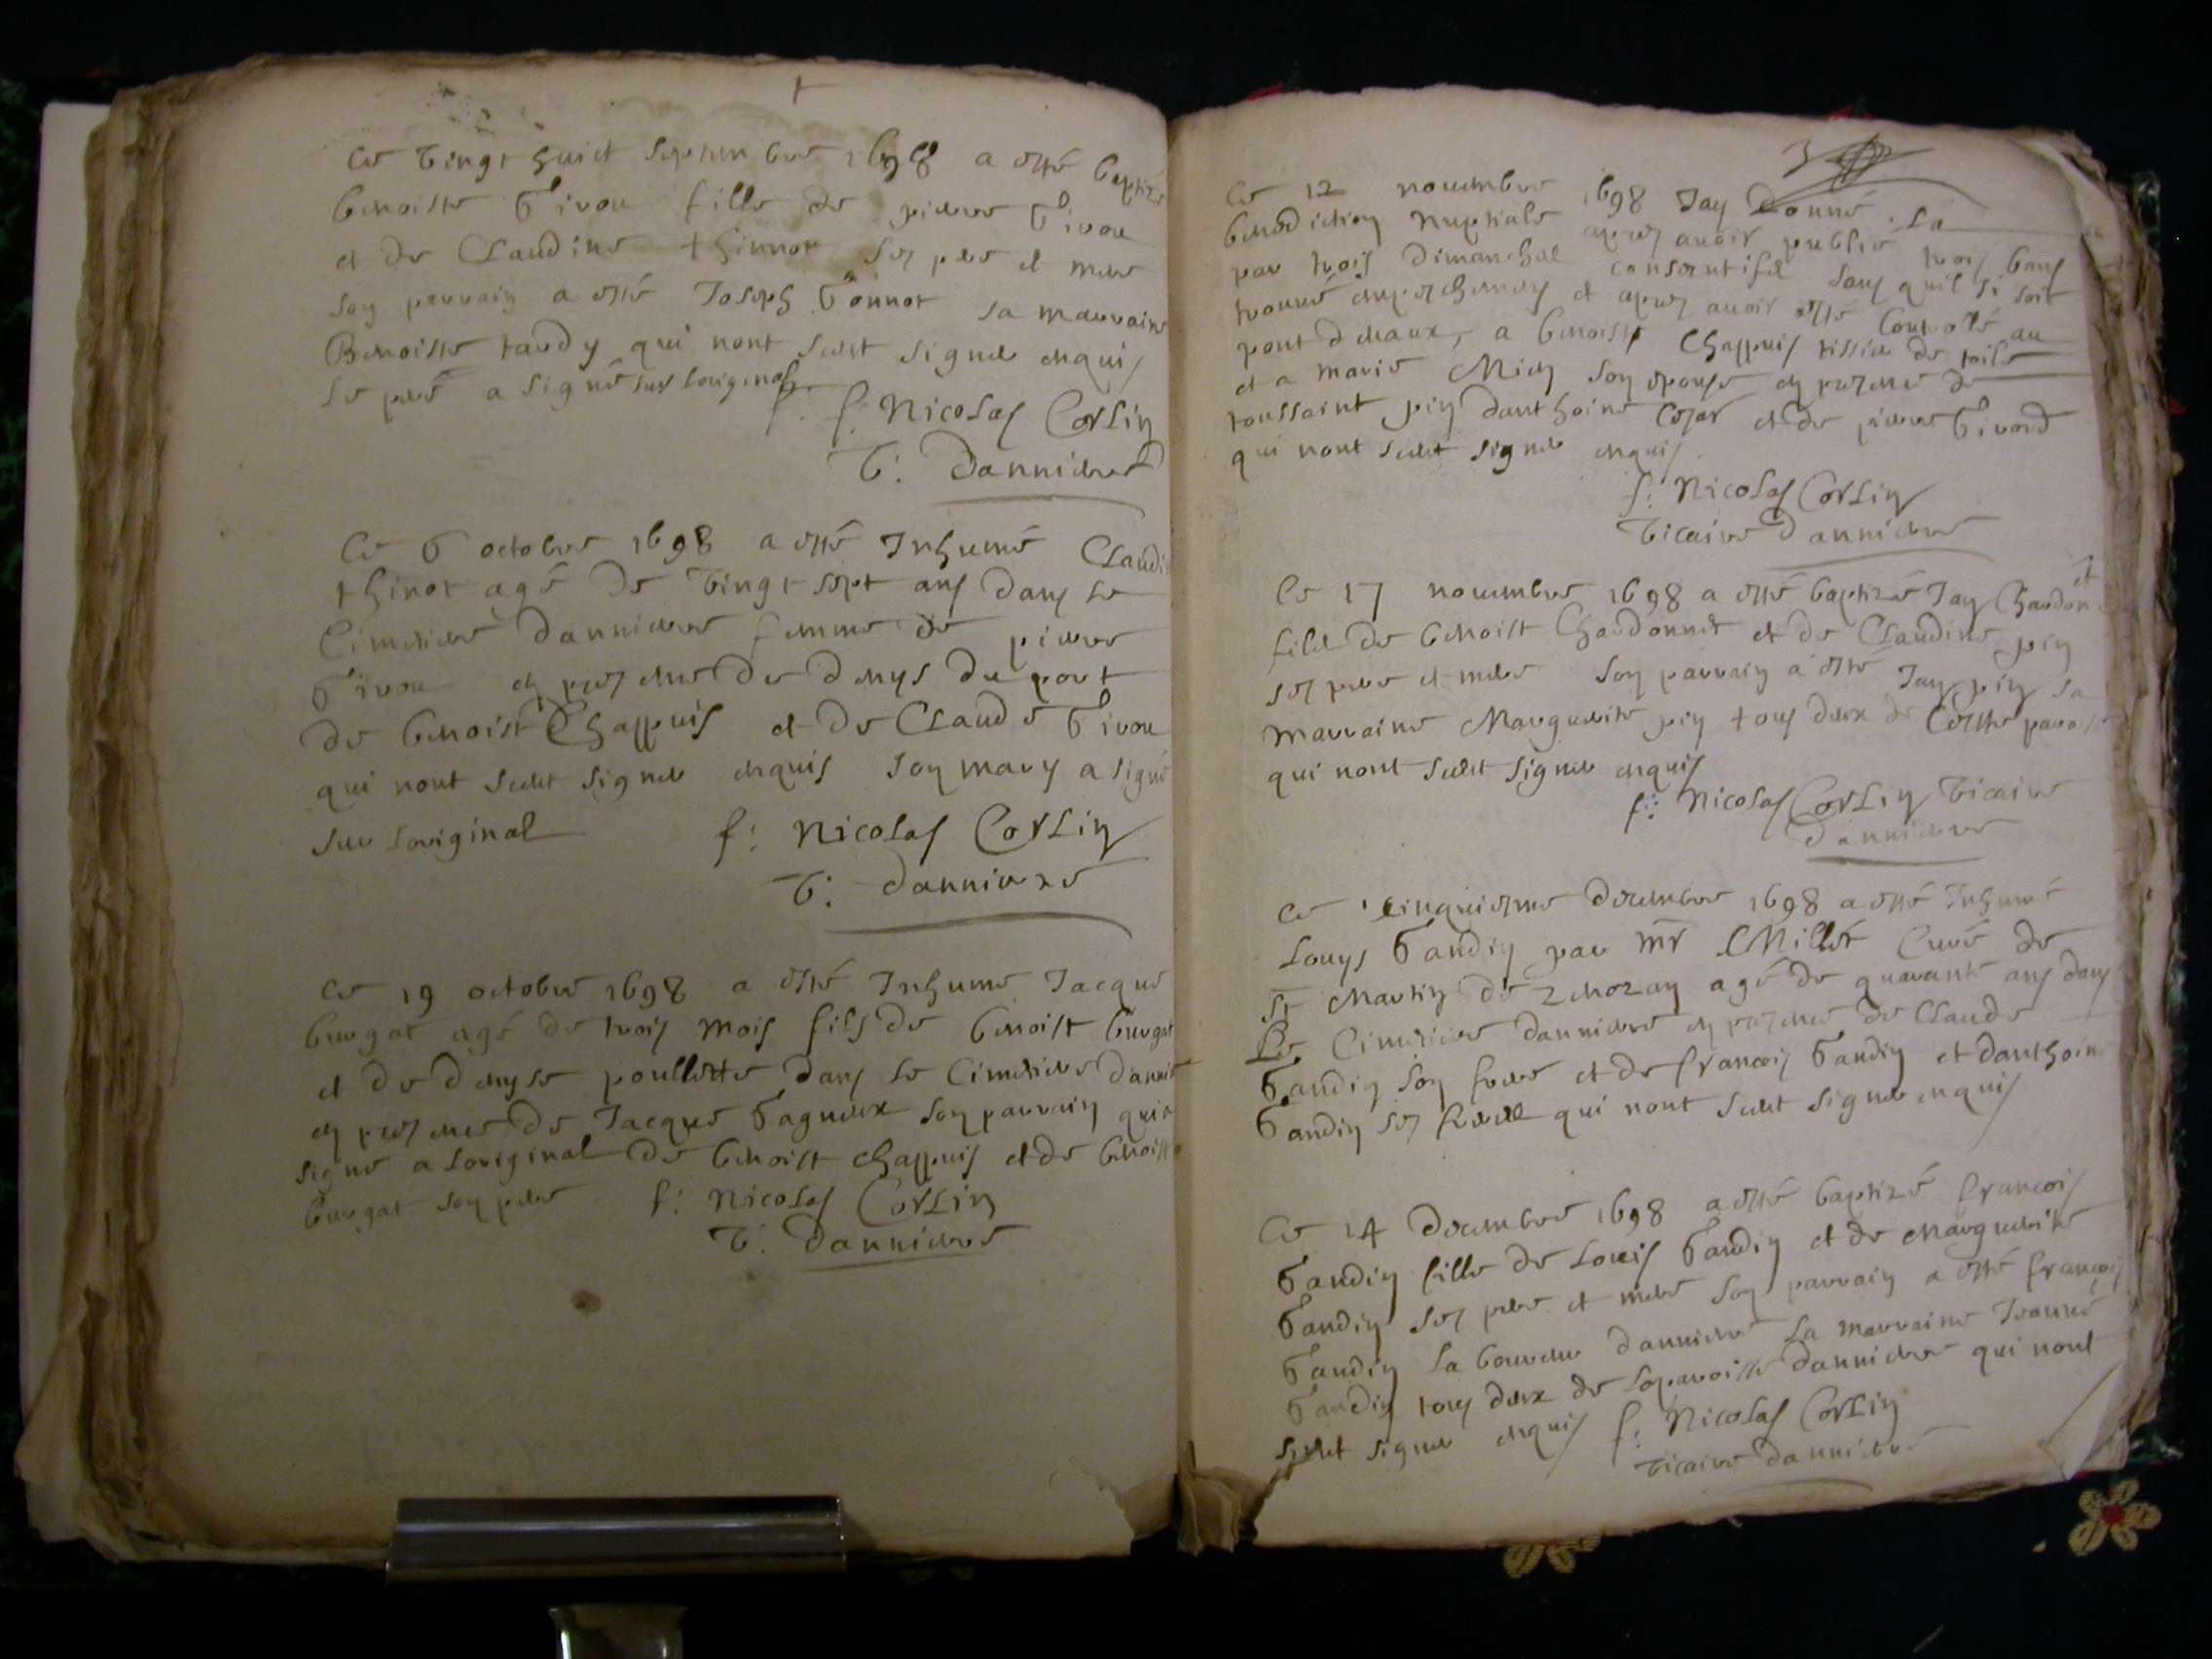 Ce vingt huict septembre 1698 a esté baptizée
benoiste Givou fille de pierre Givou
et de Claudine thinnot ses pere et mere
son parrain a esté Joseph Gonnot sa marraine
Benoiste tardy qui nont sceut signer enquis
le pere a signé sur loriginal
f: Nicolas Corlin
V: danniere
Ce 6 octobre 1698 a esté Inhumé Claudi
thinot agé de vingt sept ans dans le
Cimetiere danniere femme de pierre
Givou en presence de denys dupont
de benoist Chappuis et de Claude Givou
qui nont sceut signer enquis son mary a signé
sur loriginal f: Nicolas Corlin
V: danniere
Ce 19 octobre 1698 a esté Inhumé Jacque
burgat agé de trois mois fils de benoist burgat
et de denyse poullette dans le Cimetiere dannie
en presence de Jacque Gagneux son parrain qui a
signé a loriginal de benoist chappuis et de benoist
burgat son pere f: Nicolas Corlin
V: danniere
3
Ce 12 novembre 1698 Jay donné la
benediction nuptiale apres avoir publié trois bans
par trois dimanche consecutife sans quil si soit
trouvé empeschement et apres avoir esté Controllé au
pont deveaux, a benoist Chappuis tissier de toile
et a marie Mich son epouse en presence de
toussaint pin danthoine Cesar et de pierre Givord
qui nont sceut signer enquis
f: Nicolas Corlin
Vicaire danniere
Ce 17 novembre 1698 a esté baptizé Jan Chardonet
fils de benoist Chardonnet et de Claudine pin
ses pere et mere son parrain a esté Jan pin sa
marraine Marguerite pin tous deux de Cette paroisse
qui nont sceut signer enquis
f: Nicolas Corlin Vicaire
danniere
Ce cinquiesme decembre 1698 a esté Inhumé
Louys Gandin par mr Millet Curé de
St Martin de agé de quarante ans dans
Le Cimetiere danniere en presence de Claude
Gandin son frere et de francois Gandin et danthoin
Gandin ses frere qui nont sceut signer enquis
Ce 14 decembre 1698 a esté baptizé francois
Gandin fille de Louis Gandin et de Marguerite
Gandin ses pere et mere son parrain a esté francois
Gandin danniere la marraine Jeanne
Gandin tous deux de la paroisse danniere qui nont
sceut signer enquis f: Nicolas Corlin
Vicaire danniere